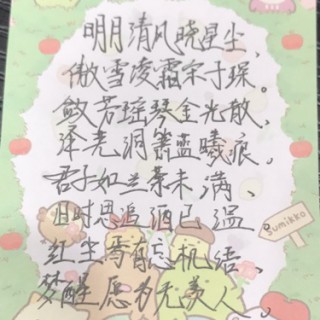 明月清风晓星尘、
傲雪凌霜宋子琛。
敛芳瑶琴金光散、
泽芜洞箫蓝曦痕、
君子如兰荼未满、
旧时思追酒已温
红尘焉有忘机结、
梦醒愿为无羡人、
sumikko